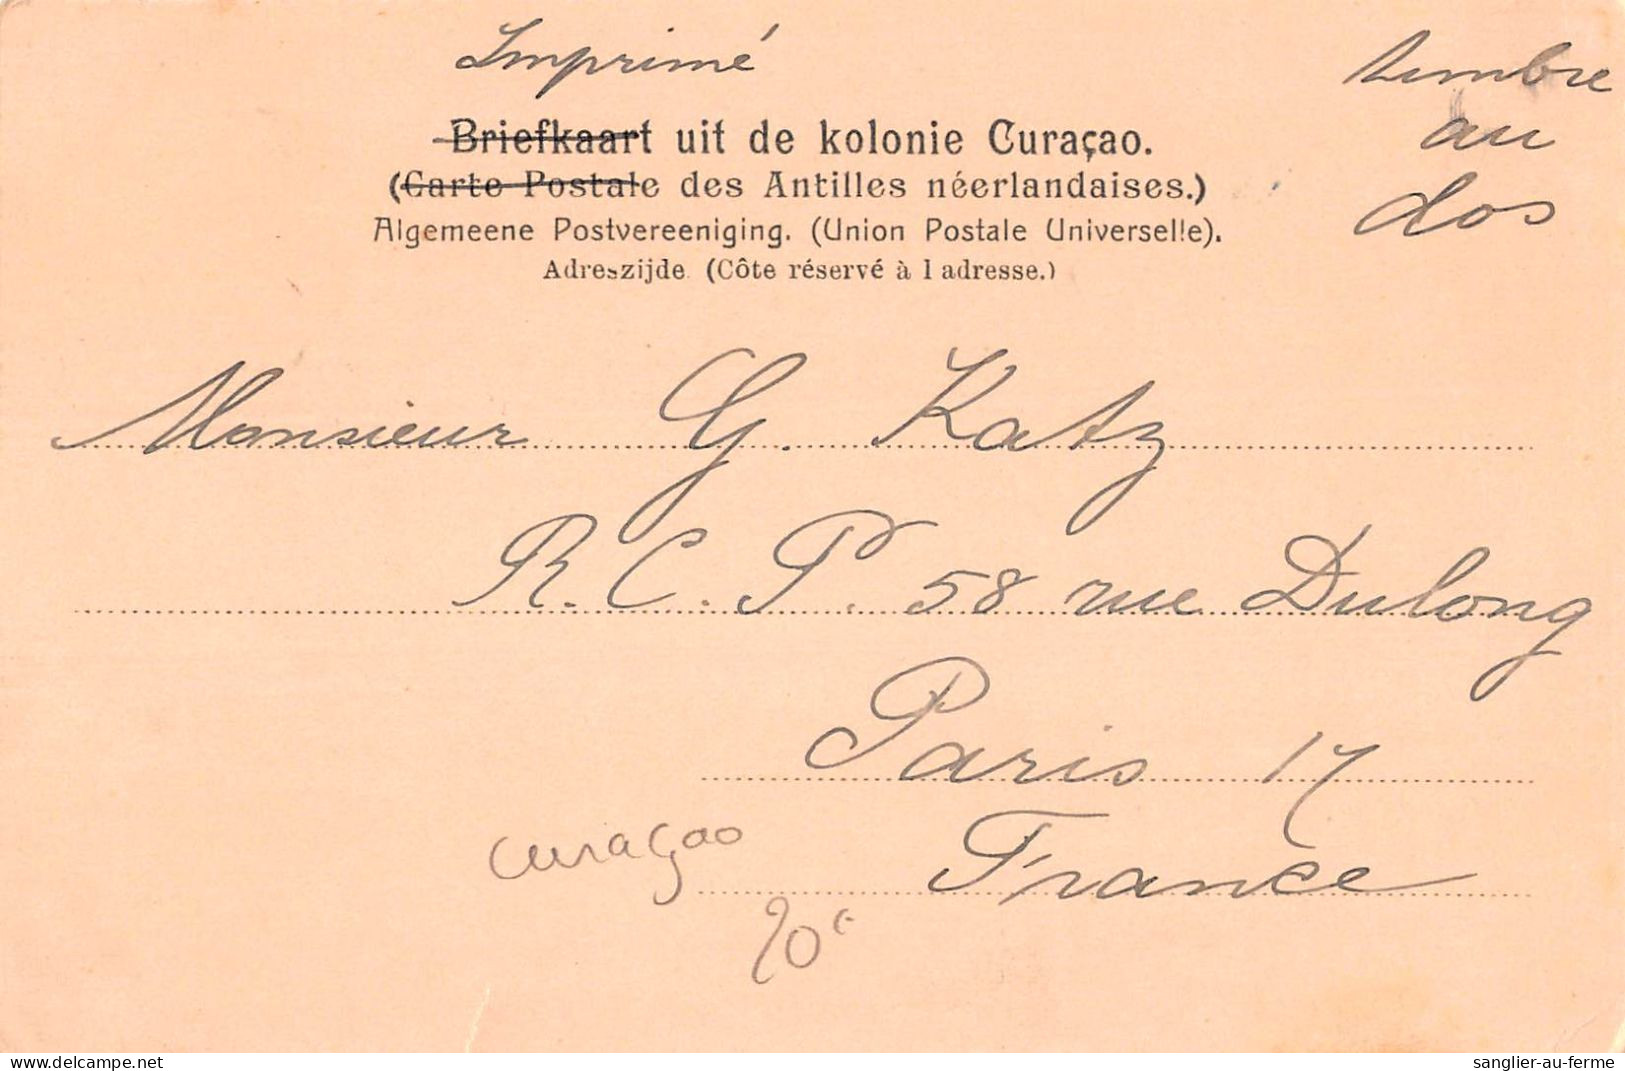 Imprimé
timbre
au
dos
Briefkaart uit de kolonie Curaçao.
(Carte Postale des Antilles néerlandaises.)
Algemeene Postvereeniging. (Union Postale Universelle).
Adreszijde (Côte réservé à l adresse.)
Monsieur G. Katz
R. C. P. 58 rue Dulong
Paris 17
France
curaçao
delcampe.net
sanglier-au-ferme